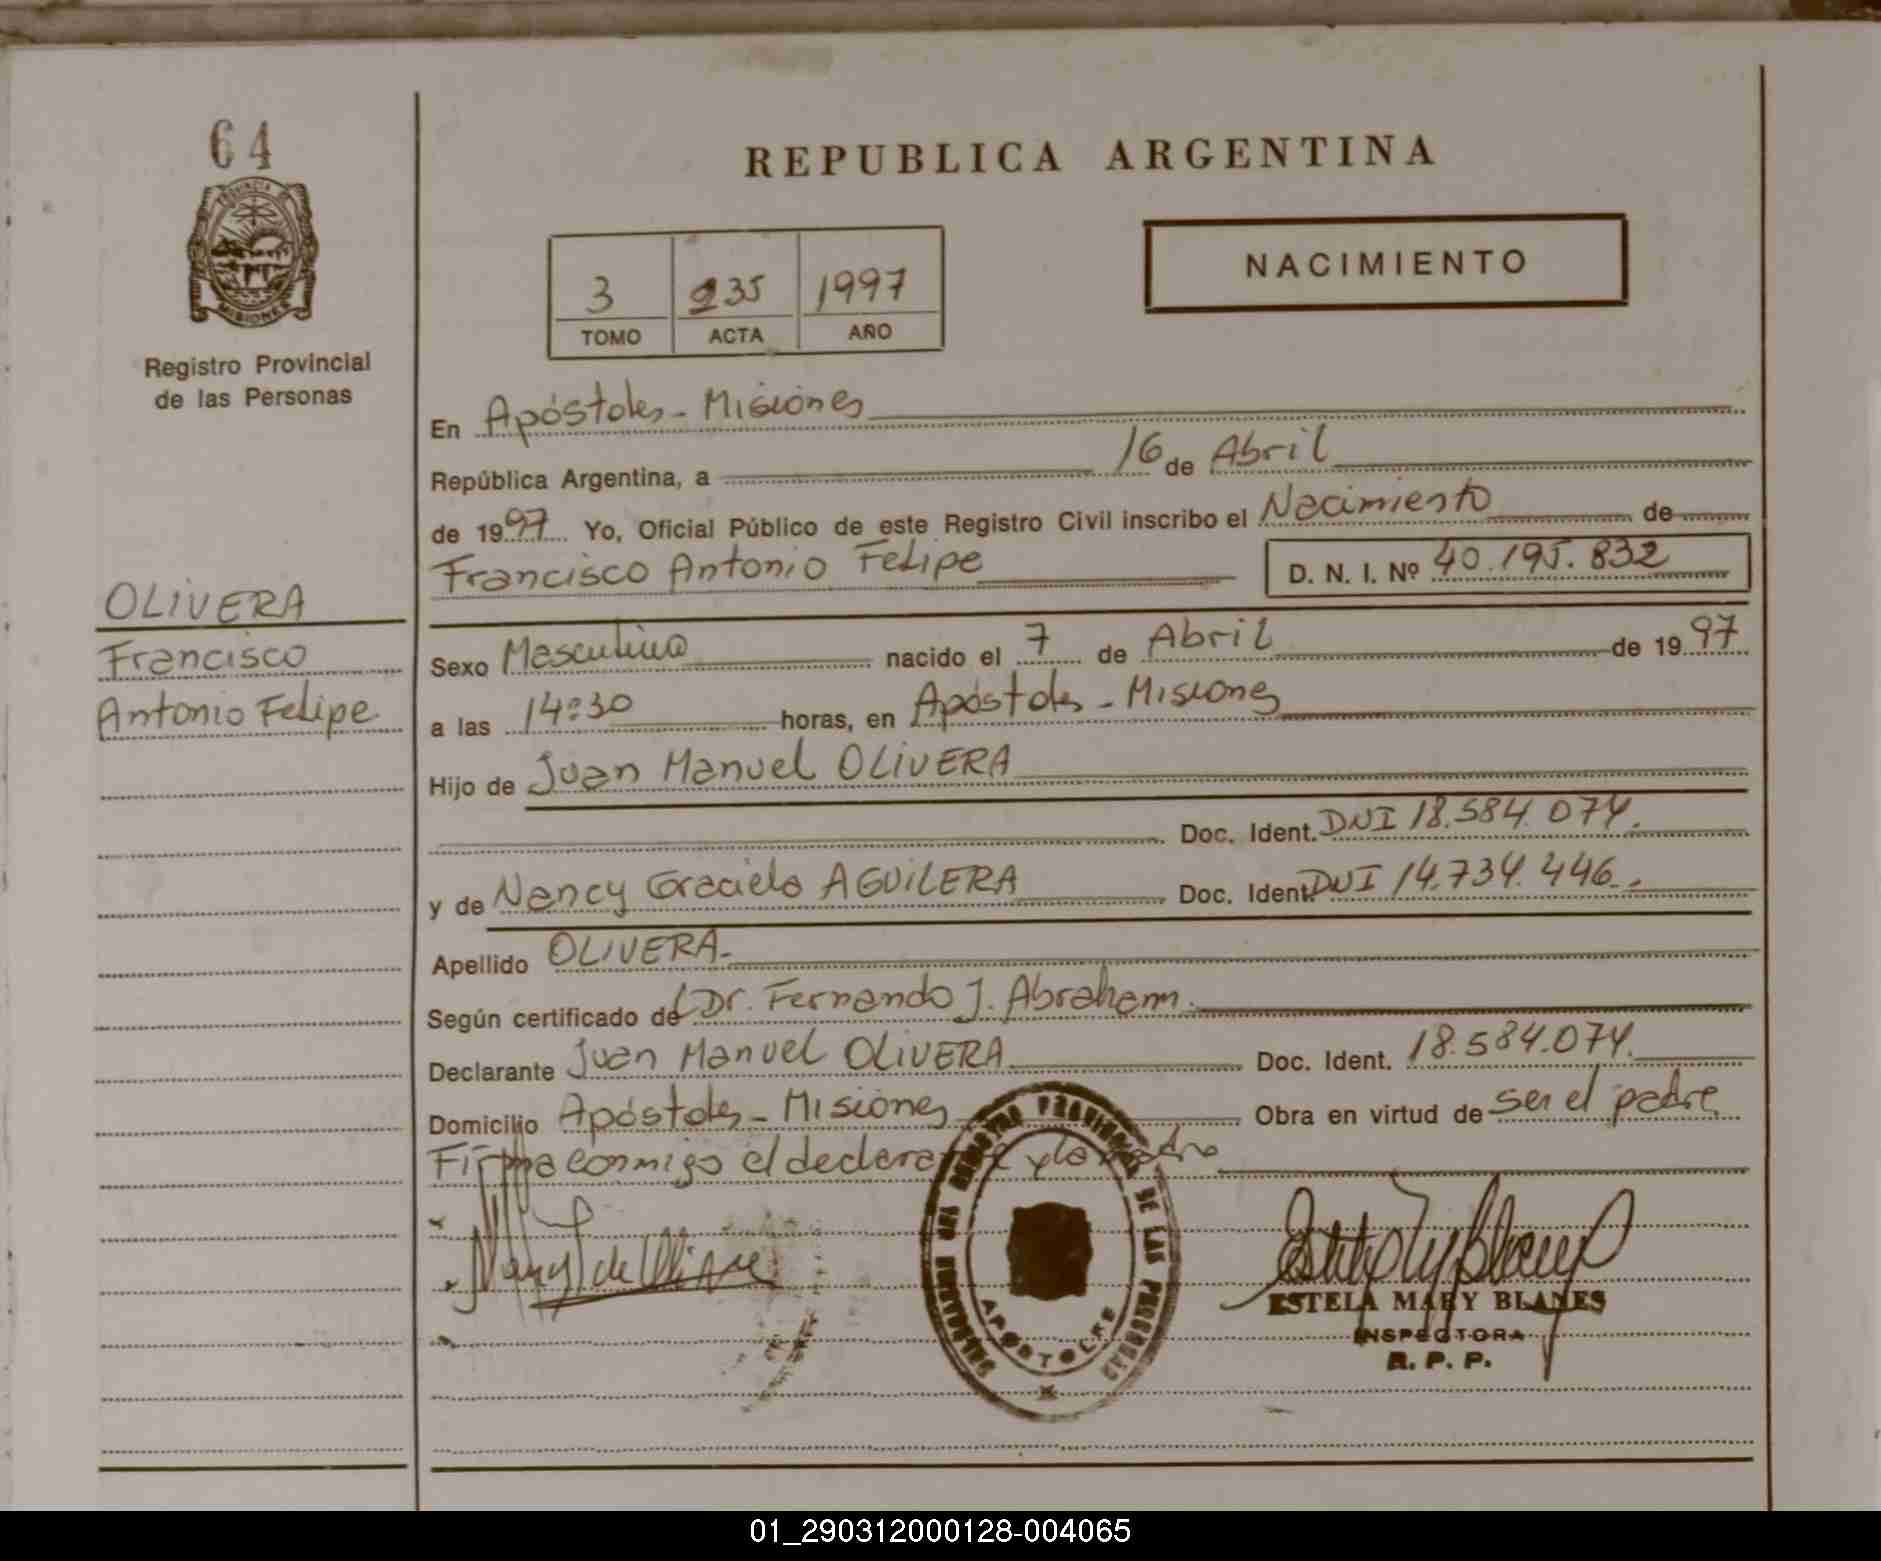 64
PROVINCIA DE
MISIONES
Registro Provincial
de las Personas
OLIVERA
Francisco
Antonio Felipe
REPUBLICA ARGENTINA
3 235 1997
TOMO ACTA AÑO
NACIMIENTO
En Apóstoles - Misiones
República Argentina, a 16 de Abril
de 1997 Yo, Oficial Público de este Registro Civil inscribo el Nacimiento de
Francisco Antonio Felipe D. N. I. Nº 40.195.832
Sexo Masculino nacido el 7 de Abril de 1997
a las 14:30 horas, en Apóstoles - Misiones
Hijo de Juan Manuel OLIVERA
Doc. Ident. DNI 18.584.074.
y de Nancy Graciela AGUILERA Doc. Ident. DNI 14.734.446.
Apellido OLIVERA.
Según certificado de Dr. Fernando J. Abraham.
Declarante Juan Manuel OLIVERA Doc. Ident. 18.584.074.
Domicilio Apóstoles - Misiones Obra en virtud de ser el padre
Firma conmigo el declarante y la madre
REGISTRO PROVINCIAL DE LAS PERSONAS
APOSTOLES
ESTELA MARY BLANES
INSPECTORA
R. P. P.
01_290312000128-004065